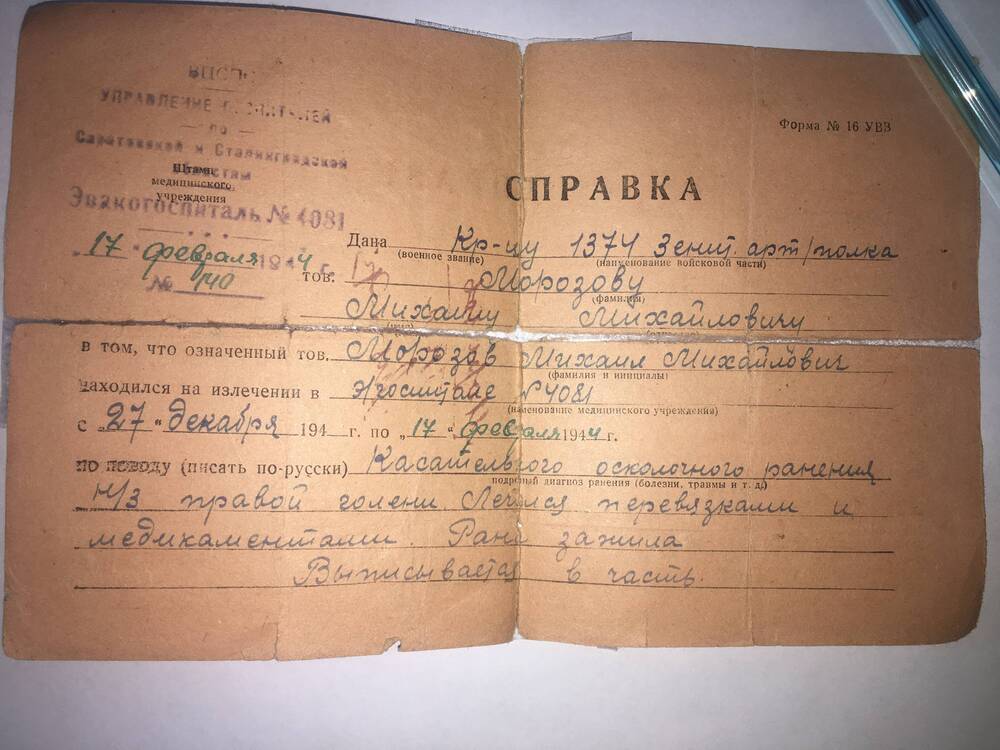 Форма № 16 УВЗ
УПРАВЛЕНИЕ
по
Саратовской и Сталинградской
областям
Штамп
медицинского
учреждения
Эвакогоспиталь № 4081
„17“ февраля 1944 г.
№ 440
СПРАВКА
Дана Кр-цу 1374 Зенит. арт/полка
(военное звание) (наименование войсковой части)
тов. Морозову
(фамилия)
Михаилу Михайловичу
в том, что означенный тов. Морозов Михаил Михайлович
(фамилия и инициалы)
находился на излечении в эгоспитале № 4081
(наименование медицинского учреждения)
с „27“ декабря 194 г. по „17“ февраля 1944 г.
по поводу (писать по-русски) Касательного осколочного ранения
подробный диагноз ранения (болезни, травмы и т. д.)
н/з правой голени. Лечился перевязками и
медикаментами. Рана зажила
Выписывается в часть.